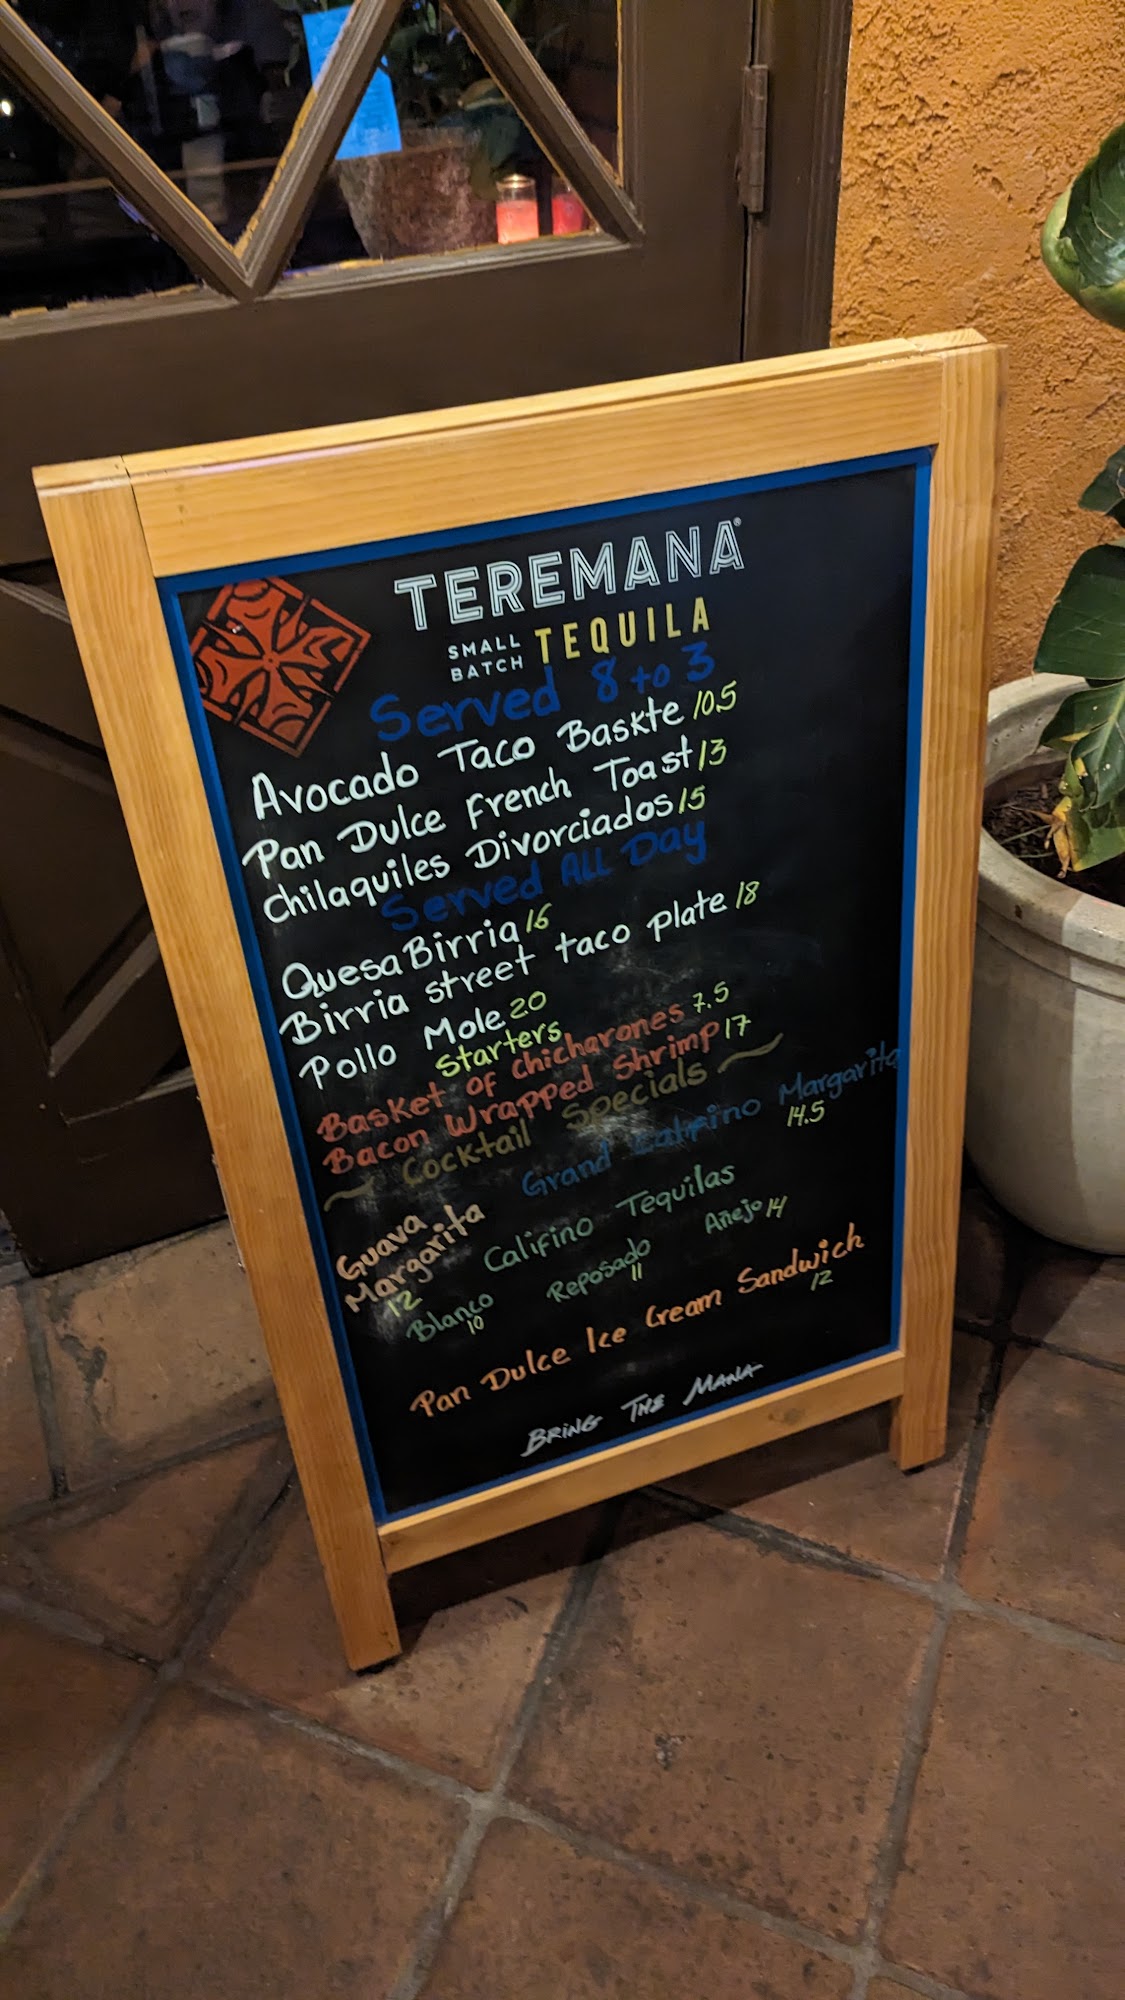 TEREMANA®
SMALL BATCH TEQUILA
Served 8 to 3
Avocado Taco Baskte 10.5
Pan Dulce French Toast 13
chilaquiles Divorciados 15
Served All Day
QuesaBirria 16
Birria street taco plate 18
Pollo Mole 20
Starters
Basket of Chicharones 7.5
Bacon Wrapped Shrimp 17
Cocktail Specials
Grand Califino Margarita
14.5
Guava
Margarita
12
Califino Tequilas
Blanco Reposado Añejo 14
10 11
Pan Dulce Ice Cream Sandwich
12
BRING THE MANA